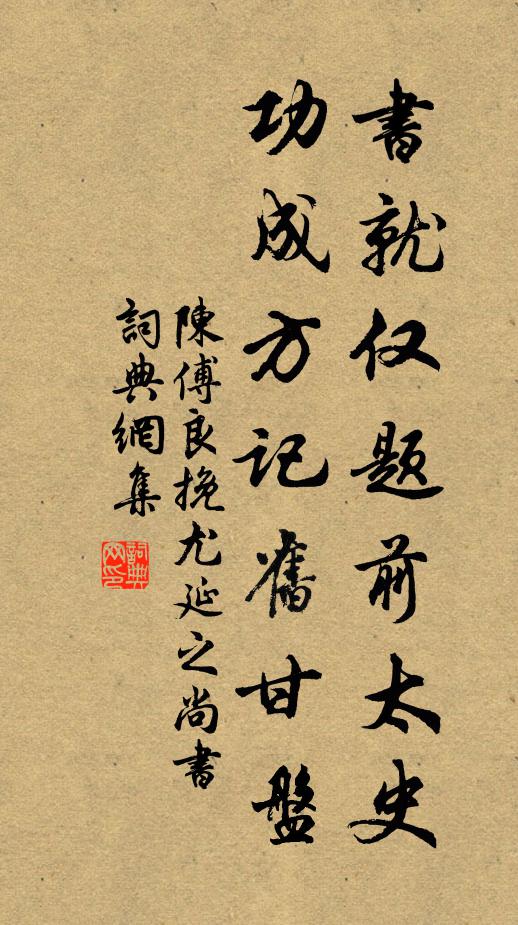 書就仅题前太史
功成方记舊甘盤
陳傅良挽尤延之尚書
詞典網集
詞典网印